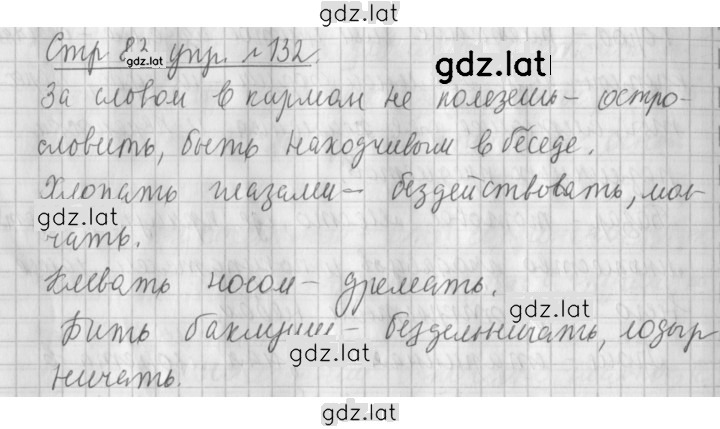 gdz.lat
Стр 82 упр. №132.
gdz.lat
gdz.lat
За словом в карман не полезешь - остро-
словить, быть находчивым в беседе.
Хлопать глазами - бездействовать, мол-
gdz.lat
чать.
Клевать носом - дремать.
gdz.lat
Бить баклуши - бездельничать, лодыр
gdz.lat
ничать.
gdz.lat